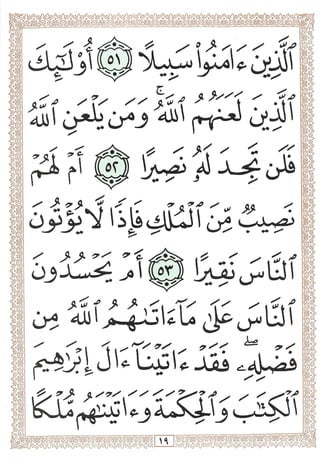 ٱلَّذِينَ ءَامَنُوا۟ سَبِيلًا ٥١ أُو۟لَـٰٓئِكَ
ٱلَّذِينَ لَعَنَهُمُ ٱللَّهُ ۖ وَمَن يَلْعَنِ ٱللَّهُ
فَلَن تَجِدَ لَهُۥ نَصِيرًا ٥٢ أَمْ لَهُمْ
نَصِيبٌ مِّنَ ٱلْمُلْكِ فَإِذًا لَّا يُؤْتُونَ
ٱلنَّاسَ نَقِيرًا ٥٣ أَمْ يَحْسُدُونَ
ٱلنَّاسَ عَلَىٰ مَآ ءَاتَىٰهُمُ ٱللَّهُ مِن
فَضْلِهِۦ ۖ فَقَدْ ءَاتَيْنَآ ءَالَ إِبْرَٰهِيمَ
ٱلْكِتَـٰبَ وَٱلْحِكْمَةَ وَءَاتَيْنَـٰهُم مُّلْكًا
١٩